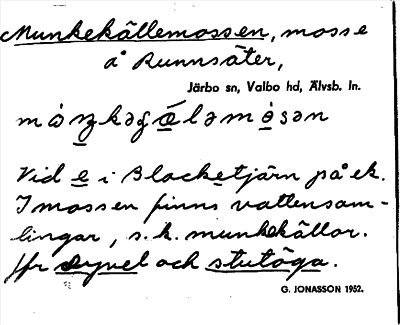 Munkekällemossen, mosse
å Runnsäter,
Järbo sn, Valbo hd, Älvsb. ln.
Vid e i Blacketjärn på ek.
I mossen finns vattensam-
lingar, s.k. munkekällor.
Jfr dyvel och stutöga.
G. JONASSON 1952.